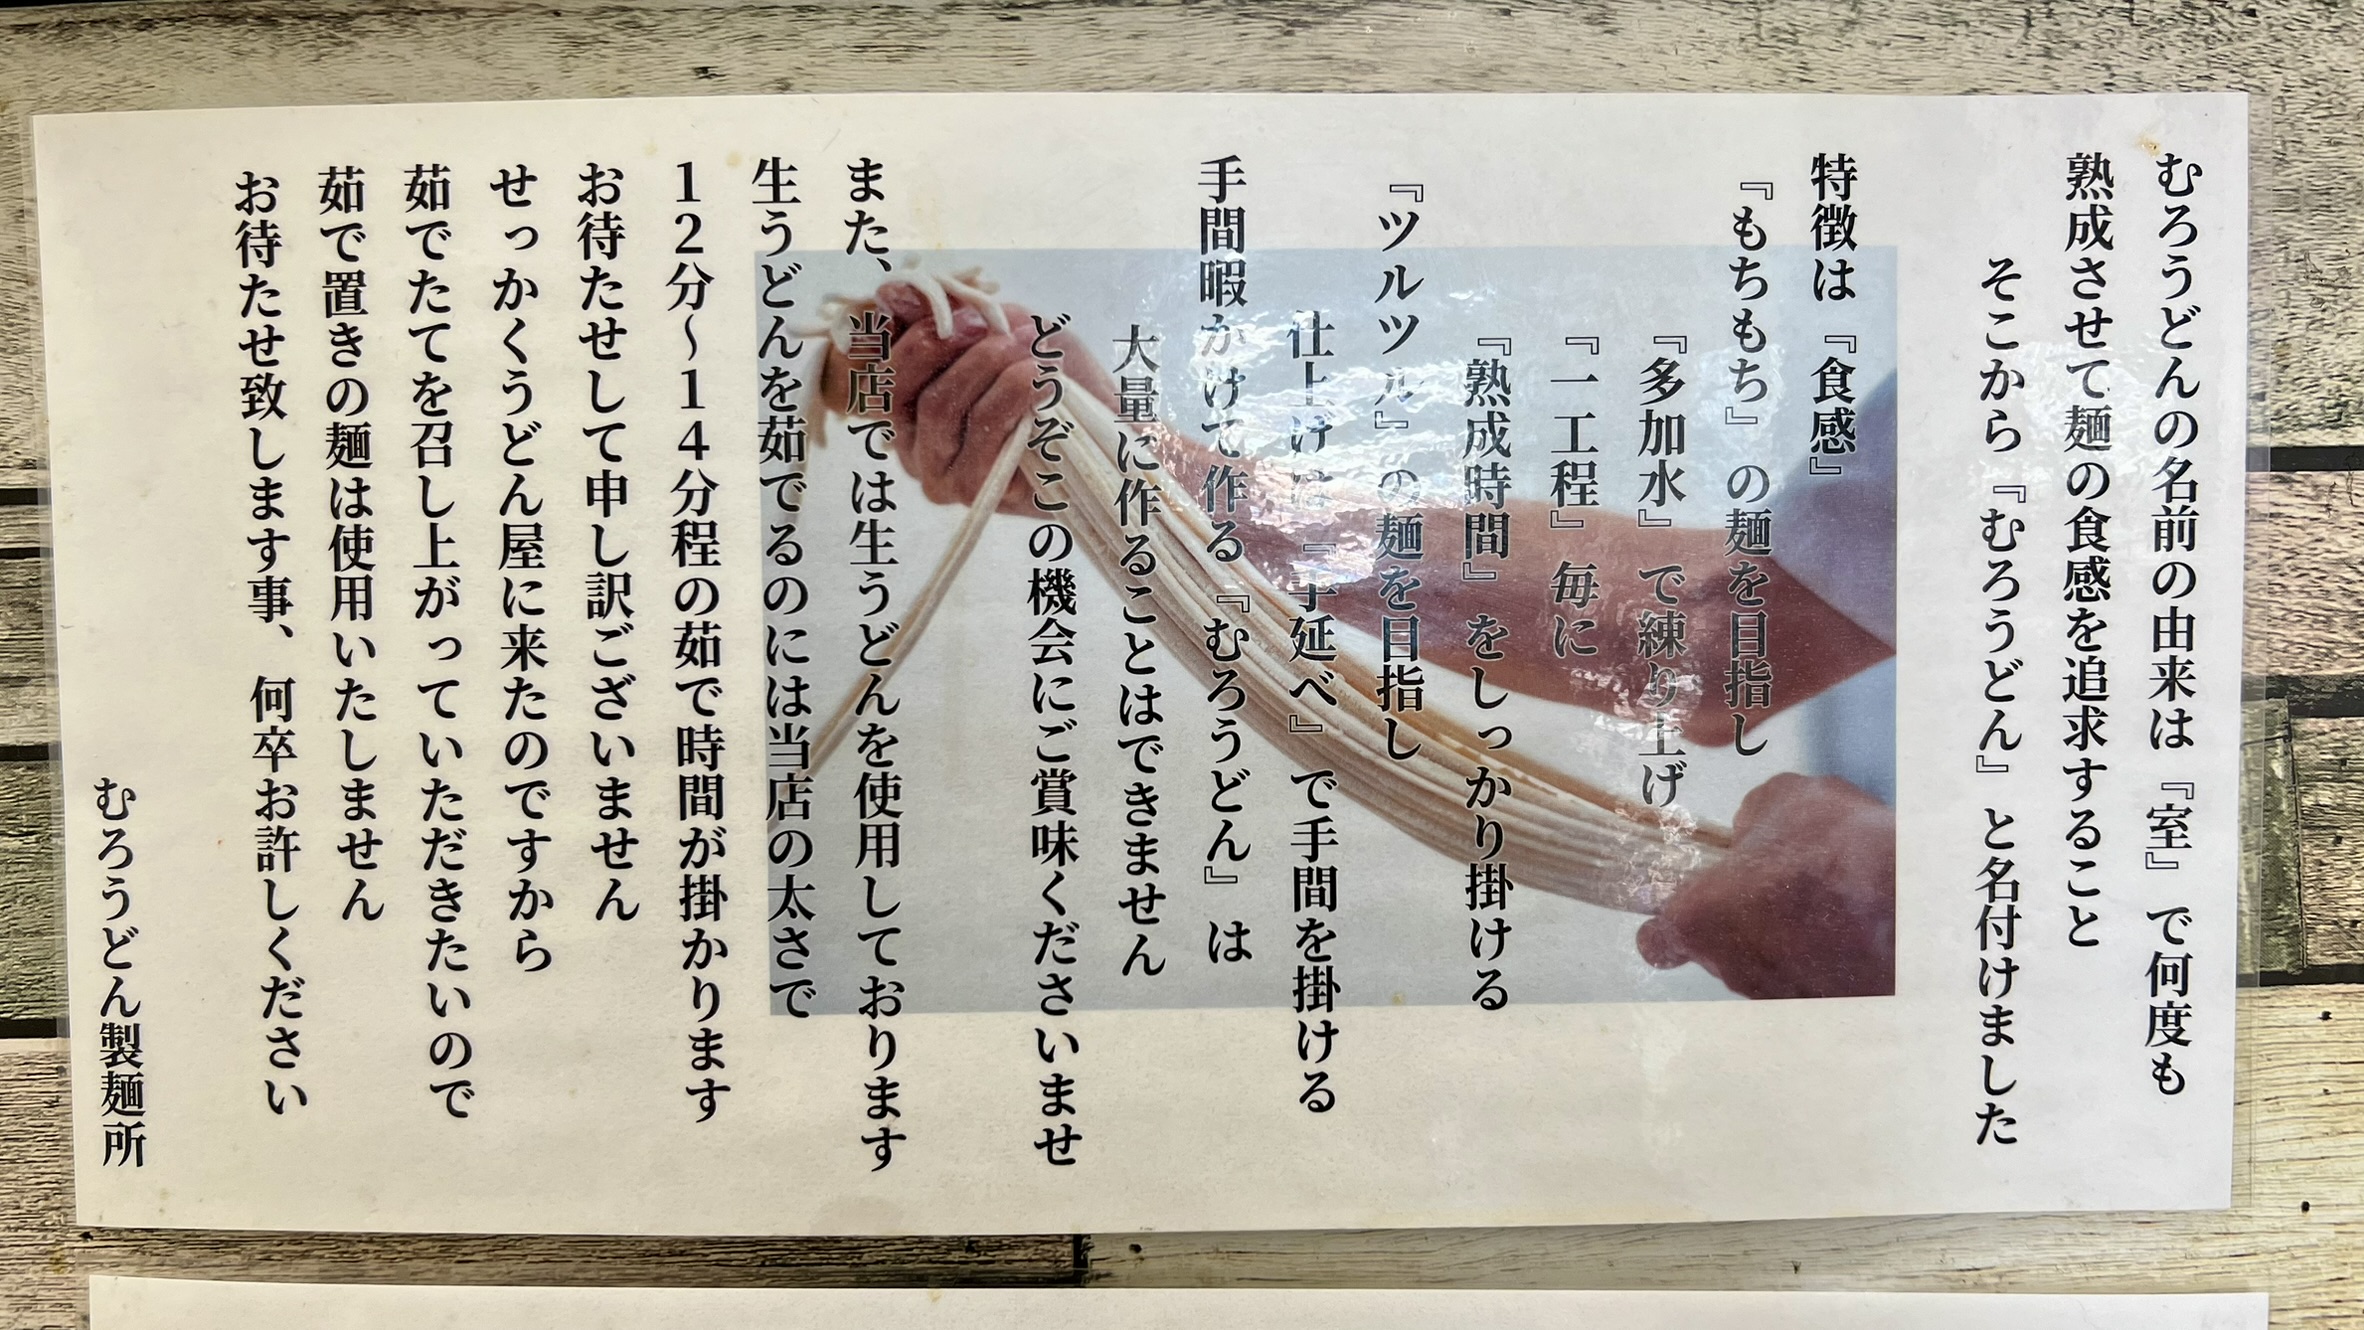 むろうどんの名前の由来は『室』で何度も
熟成させて麺の食感を追求すること
そこから『むろうどん』と名付けました
特徴は『食感』
『もちもち』の麺を目指し
『多加水』で練り上げ
『一工程』毎に
『熟成時間』をしっかり掛ける
『ツルツル』の麺を目指し
仕上げは『手延べ』で手間を掛ける
手間暇かけて作る『むろうどん』は
大量に作ることはできません
どうぞこの機会にご賞味くださいませ
また、当店では生うどんを使用しております
生うどんを茹でるのには当店の太さで
12分～14分程の茹で時間が掛かります
お待たせして申し訳ございません
せっかくうどん屋に来たのですから
茹でたてを召し上がっていただきたいので
茹で置きの麺は使用いたしません
お待たせ致します事、何卒お許しください
むろうどん製麺所